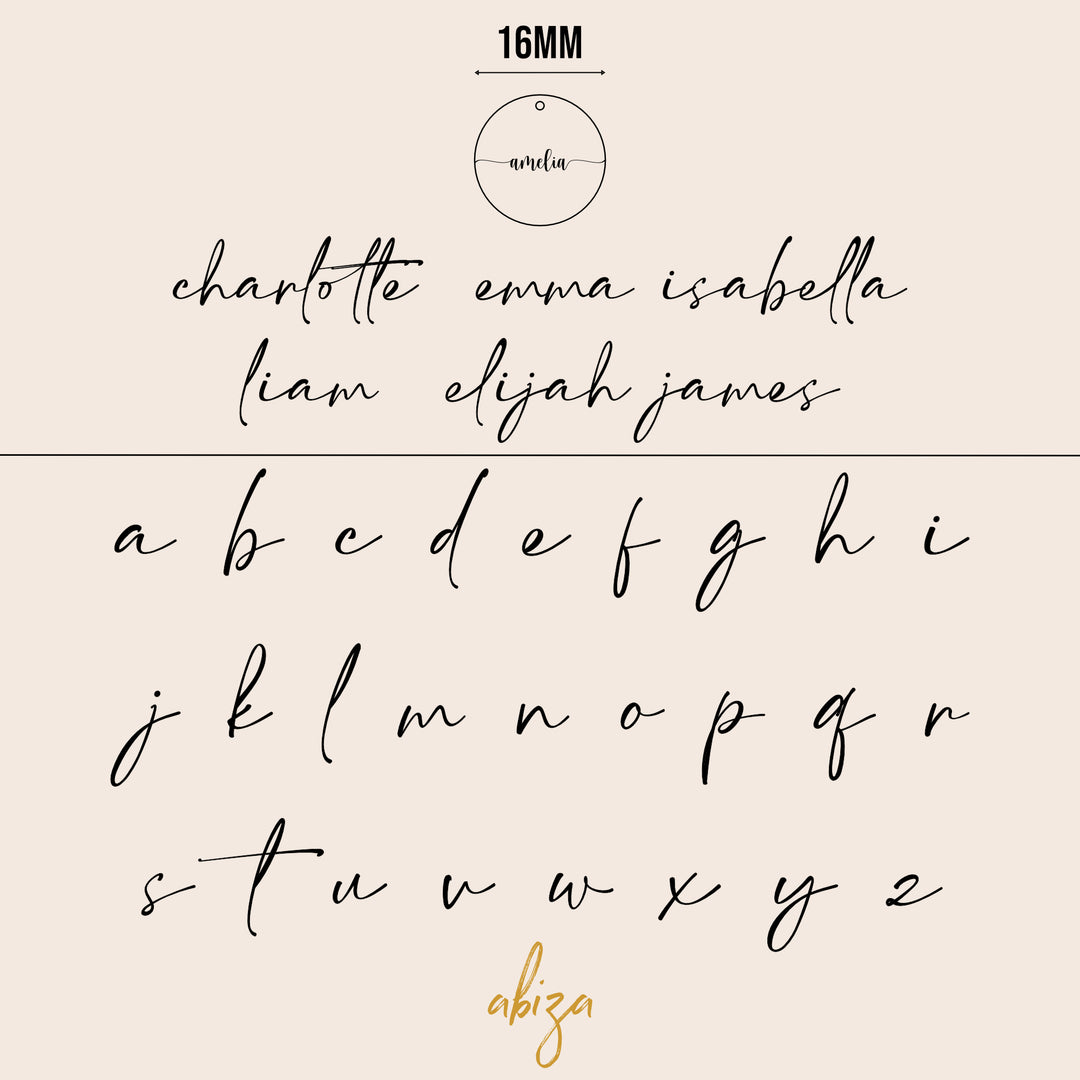 16MM
amelia
charlotte emma isabella
liam elijah james
a b c d e f g h i
j k l m n o p q r
s t u v w x y z
abiza